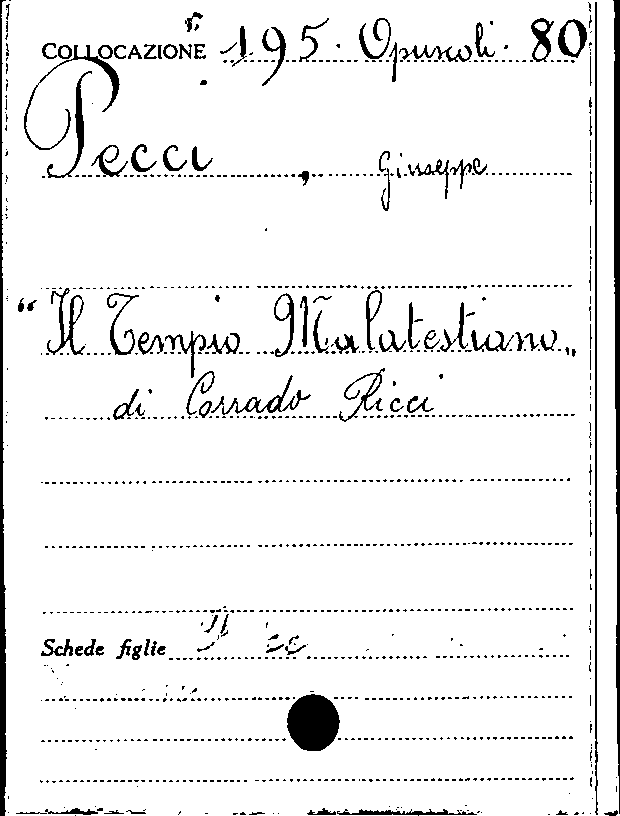 COLLOCAZIONE 195. Opuscoli. 80
Pecci, Giuseppe
“Il Tempio Malatestiano„
di Corrado Ricci
Schede figlie